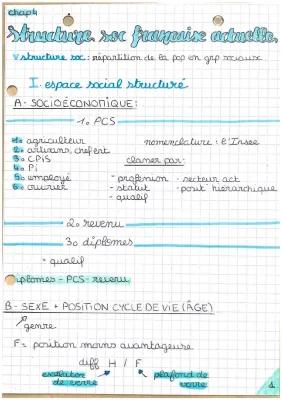 chap 4
structure soc française actuelle.
structure soc : répartition de la pop en grp sociaux
I. espace social structuré
A - SOCIOÉCONOMIQUE :
1. PCS
1. agriculteur
2. artisans, chefent
3. CPiS
4. Pi
5. employé
6. ouvrier
nomenclature : l'Insee
classer par :
- profession
- statut
- qualif
- secteur act
- posit° hiérarchique
2. revenu
3. diplômes
= qualif
diplômes - PCS - revenu
B - SEXE + POSITION CYCLE DE VIE (ÂGE)
genre
F = position moins avantageuse
diff H / F
escalator de verre
plafond de verre
1